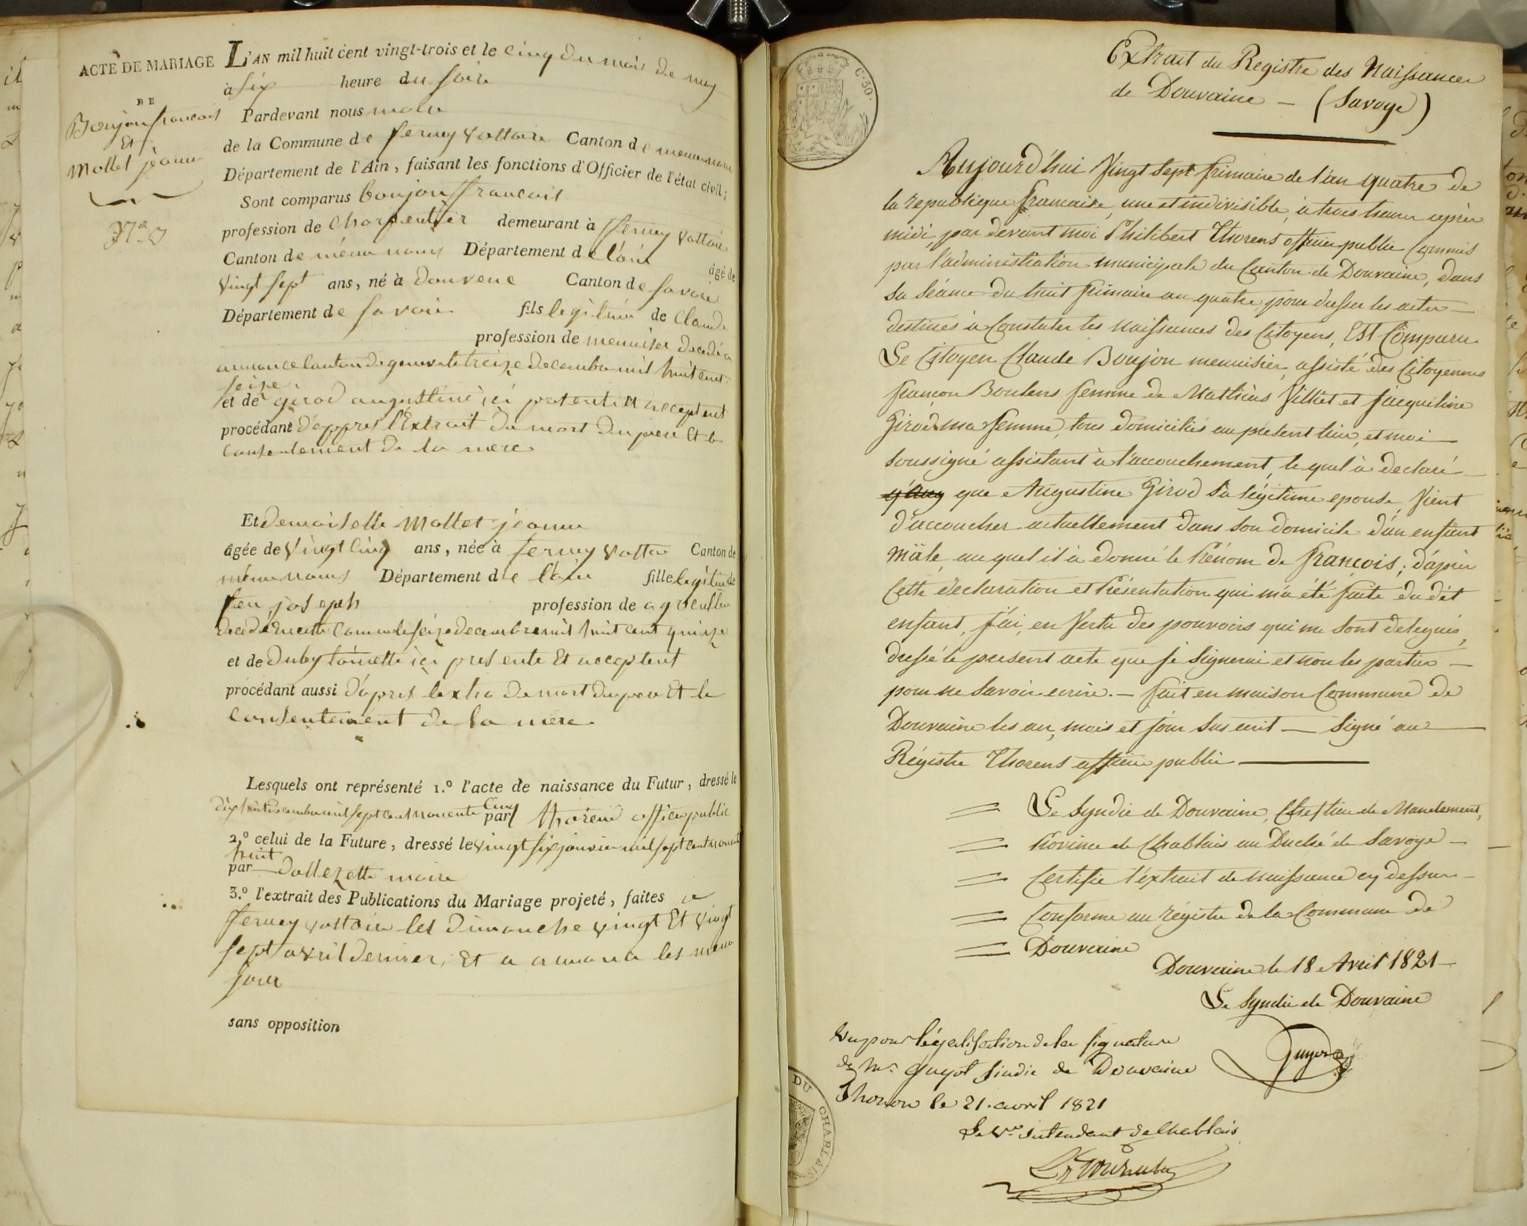 ACTE DE MARIAGE
DE
Boujon francois
Et
Mollet jeanne
L'AN mil huit cent vingt-trois et le cinq du mois de may
à six heure du soire
Pardevant nous maire
de la Commune de ferney voltaire Canton de meme nom
Département de l'Ain, faisant les fonctions d'Officier de l'état civil;
Sont comparus boujon francois
profession de Charpentier demeurant à fferney voltaire
Canton de même nom Département de l'ain âgé de
vingt sept ans, né à douvene Canton de Savoie
Département de Savoie fils legitime de Claude
profession de menuisier decedé a
canton de treize decembre mil huit cent
seize
et de girod augustine ici presente et acceptent
procédant d'appres l'Extrait de mort du pere Et le
consentement de la mere
Et demoiselle Mollet jeanne
âgée de vingt cinq ans, née à ferney voltaire Canton de
même nom Département de l'ain fille legitime de
feu joseph profession de
decedé seize decembre mil huit cent quinze
et de Duby ici presente Et acceptent
procédant aussi d'apres lextra de mort du pere Et le
consentement de la mere
Lesquels ont représenté 1.º l'acte de naissance du Futur, dressé le
dix huit decembre mil sept cent nonente cinq
par thorens officier public
2.º celui de la Future, dressé le vingt six janvier mil sept cent nonente
huit
par Dallezette maire
3.º l'extrait des Publications du Mariage projeté, faites a
fferney voltaire les Dimanche vingt Et vingt
sept avril dernier, Et a les meme
jour
sans opposition
C. 30.
Extrait du Registre des Naissances
de Douvaine — (Savoye)
Aujourd'hui Vingt Sept frimaire de l'an quatre de
la republique francaise, une et indivisible, à trois heures après
midi, par devant moi Philibert Thorens officier public Commis
par l'administration municipale du Canton de Douvaine, dans
sa séance du huit frimaire an quatre pour dresser les actes
destinés à Constater les Naissances des Citoyens, Est Comparu
Le Citoyen Claude Boujon menuisier, assisté des Citoyennes
francoise Boulens femme de Mathieu Villiet et Jacqueline
Girod ma femme, tous domiciliés au present lieu, et moi
soussigné assistant à l'accouchement, le quel à declaré
que Augustine Girod sa légitime epouse Vient
d'accoucher actuellement dans son domicile d'un enfant
Mâle, au quel il à donné le Prénom de francois; d'après
Cette declaration et Présentation qui m'a été faite du dit
enfant, J'ai, en Vertu des pouvoirs qui me sont delegués,
dressé le present acte que je signerai et non les parties —
pour ne savoir ecrire. — fait en maison Commune de
Douvaine les an, mois et jour sus ecrit — Signé au
Régistre Thorens officier public
Le Syndic de Douvaine, Chef lieu de Mandement,
Province de Chablais au Duché de Savoye —
Certifie l'extrait de Naissance cy dessus —
Conforme au régistre de la Commune de
Douvaine
Douvaine le 18 Avril 1821
Le Syndic de Douvaine
Guyot
Vu pour légalisation de la signature
de Mr. Guyot sindic de Douvaine
Thonon le 21. avril 1821
Le Vce. intendant de Chablais
DU CHABLAIS